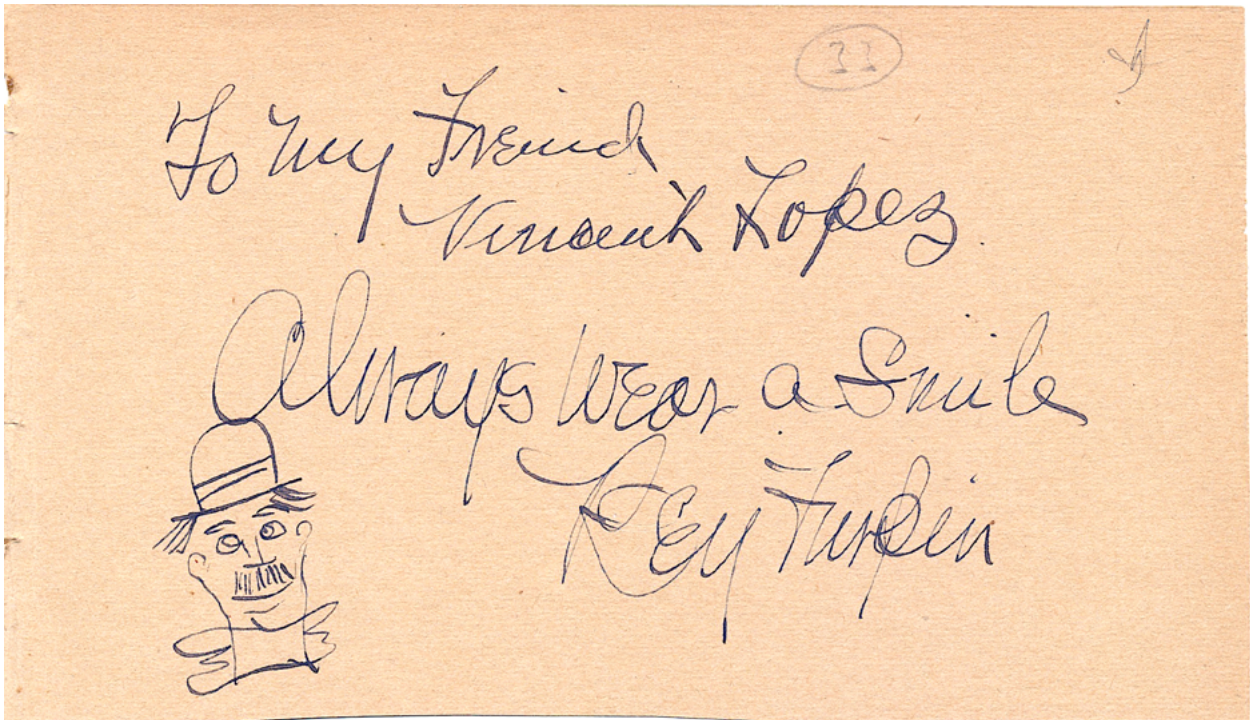 33
To My Freind
Vincent Lopez
Always Wear a Smile
Turpin